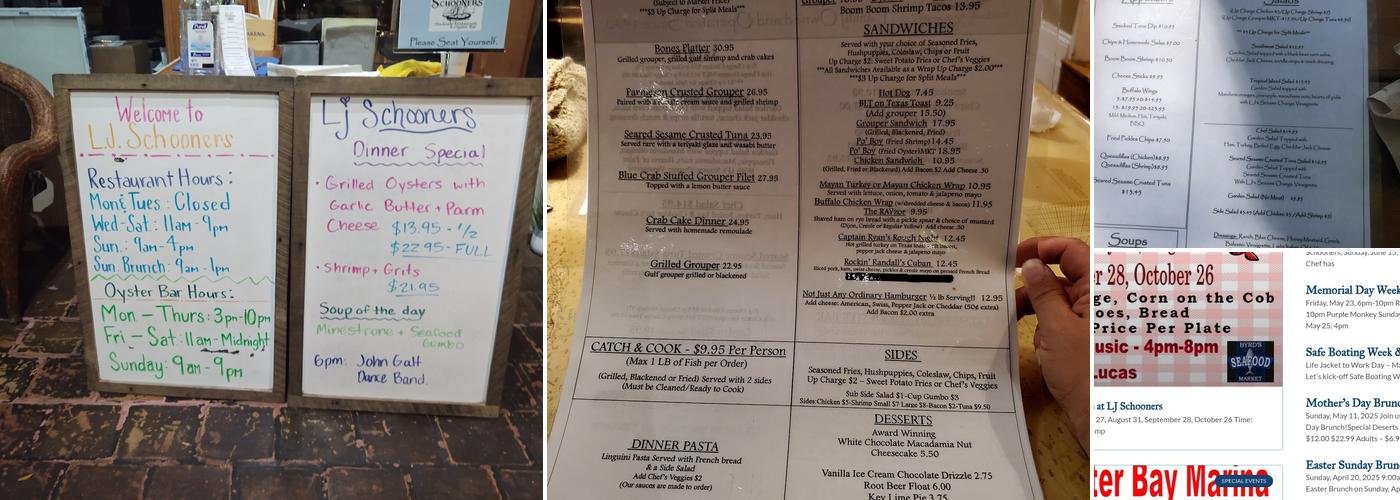 SCHOONERS
Please Seat Yourself.
Purell
Welcome to
L.J. Schooners
Restaurant Hours:
Mon & Tues: Closed
Wed-Sat: 11am-9pm
Sun.: 9am-4pm
Sun. Brunch: 9am-1pm
Oyster Bar Hours:
Mon – Thurs: 3pm-10pm
Fri – Sat: 11am-Midnight
Sunday: 9am-9pm
LJ Schooners
Dinner Special
• Grilled Oysters with
Garlic Butter + Parm
Cheese $13.95 - 1/2
$22.95 - FULL
• Shrimp + Grits
$21.95
Soup of the day
Minestrone + Seafood
Gumbo
6pm: John Galt
Dance Band.
(Subject to Market Price)
***$3 Up Charge for Split Meals***
Bones Platter 30.95
Grilled grouper, grilled gulf shrimp and crab cakes
Parmesan Crusted Grouper 26.95
Paired with a cream sauce and grilled shrimp
Seared Sesame Crusted Tuna 23.95
Served rare with a teriyaki glaze and wasabi butter
Blue Crab Stuffed Grouper Filet 27.95
Topped with a lemon butter sauce
Crab Cake Dinner 24.95
Served with homemade remoulade
Grilled Grouper 22.95
Gulf grouper grilled or blackened
CATCH & COOK - $9.95 Per Person
(Max 1 LB of Fish per Order)
(Grilled, Blackened or Fried) Served with 2 sides
(Must be Cleaned/Ready to Cook)
DINNER PASTA
Linguini Pasta Served with French bread
& a Side Salad
Add Chef's Veggies $2
(Our sauces are made to order)
Boom Boom Shrimp Tacos 13.95
SANDWICHES
Served with your choice of Seasoned Fries,
Hushpuppies, Coleslaw, Chips or Fruit
Up Charge $2: Sweet Potato Fries or Chef's Veggies
***All Sandwiches Available as a Wrap Up Charge $2.00***
***$3 Up Charge for Split Meals***
Hot Dog 7.45
BLT on Texas Toast 9.25
(Add grouper 15.50)
Grouper Sandwich 17.95
(Grilled, Blackened, Fried)
Po' Boy (Fried Shrimp) 14.45
Po' Boy (Fried Oyster) MKT 18.95
Chicken Sandwich 10.95
(Grilled, Fried or Blackened) Add Bacon $2 Add Cheese .50
Mayan Turkey or Mayan Chicken Wrap 10.95
Served with lettuce, onion, tomato & jalapeno mayo
Buffalo Chicken Wrap (w/shredded cheese & bacon) 11.95
The RAYzor 9.95
Shaved ham on rye bread with a pickle spear & choice of mustard
(Dijon, Creole or Regular Yellow) Add cheese .50
Captain Ryan's Rough Night 12.45
Hot grilled turkey on Texas toast, bacon,
pepper jack cheese & jalapeno mayo
Rockin' Randall's Cuban 12.45
Sliced pork, ham, swiss cheese, pickles & creole mayo on pressed French Bread
Not Just Any Ordinary Hamburger ½ lb Serving!! 12.95
Add cheese: American, Swiss, Pepper Jack or Cheddar (50¢ extra)
Add Bacon $2.00 extra
SIDES
Seasoned Fries, Hushpuppies, Coleslaw, Chips, Fruit
Up Charge $2 – Sweet Potato Fries or Chef's Veggies
Sub Side Salad $1-Cup Gumbo $3
Sides: Chicken $5-Shrimp Small $7 Large $8-Bacon $2-Tuna $9.50
DESSERTS
Award Winning
White Chocolate Macadamia Nut
Cheesecake 5.50
Vanilla Ice Cream Chocolate Drizzle 2.75
Root Beer Float 6.00
Key Lime Pie 3.75
Smoked Tuna Dip $10.95
Chips & Homemade Salsa $7.00
Boom Boom Shrimp $10.50
Cheese Sticks $9.95
Buffalo Wings
Mild, Medium, Hot, Teriyaki,
BBQ
Fried Pickles Chips $7.50
Quesadillas (Chicken) $8.95
Quesadillas (Shrimp) $8.95
Seared Sesame Crusted Tuna
$13.45
Soups
Salads
Southwest Salad
Tropical Island Salad
Chef Salad
Garden Salad Topped with
Ham, Turkey, Boiled Egg, Cheddar Jack Cheese
Seared Sesame Crusted Tuna Salad
Garden Salad Topped with
Seared Sesame Crusted Tuna
With L.J.'s Sesame Ginger Vinaigrette
Garden Salad (No Meat)
r 28, October 26
ge, Corn on the Cob
oes, Bread
Price Per Plate
usic - 4pm-8pm
Lucas
BYRD'S
SEAFOOD
MARKET
at LJ Schooners
27, August 31, September 28, October 26 Time:
mp
ter Bay Marina
SPECIAL EVENTS
Schooners, Sunday, June 15,
Chef has
Memorial Day Week
Friday, May 23, 6pm-10pm R
10pm Purple Monkey Sunda
May 25, 4pm
Safe Boating Week &
Life Jacket to Work Day – Ma
Let's kick-off Safe Boating W
Mother's Day Brun
Sunday, May 11, 2025 Join us
Day Brunch! Special Deserts
$12.00 $22.99 Adults – $6.9
Easter Sunday Brun
Sunday, April 20, 2025 9:0
Easter Brunch on Sunday, Ap